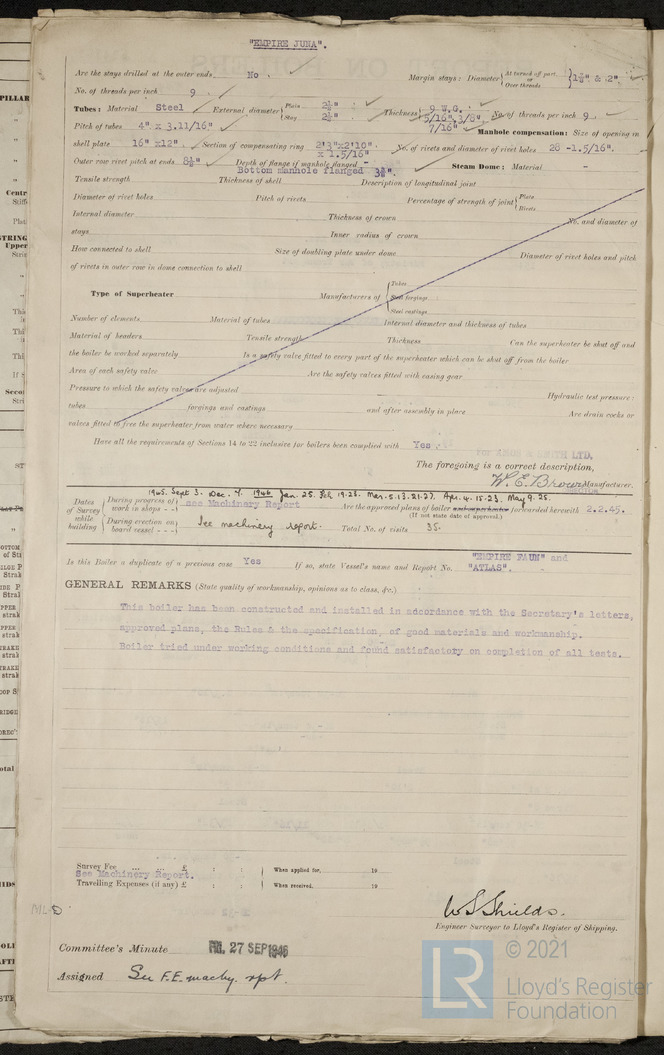 "EMPIRE JUNA".
Are the stays drilled at the outer ends No. Margin stays: Diameter { At turned off part, or Over threads } 1⅞" & 2".
No. of threads per inch 9
Tubes: Material Steel External diameter { Plain 2½" Stay 2½" Thickness { 9 W.G. 5/16" 3/8" 7/16" No. of threads per inch 9
Pitch of tubes 4" x 3.11/16" Manhole compensation: Size of opening in
shell plate 16" x12" Section of compensating ring 2'3"x2'10" x 1.5/16" No. of rivets and diameter of rivet holes 28 -1.5/16".
Outer row rivet pitch at ends 8½" Depth of flange if manhole flanged - Steam Dome: Material -
Bottom manhole flanged 3½".
Tensile strength Thickness of shell Description of longitudinal joint
Diameter of rivet holes Pitch of rivets Percentage of strength of joint { Plate Rivets
Internal diameter Thickness of crown No. and diameter of
stays Inner radius of crown
How connected to shell Size of doubling plate under dome Diameter of rivet holes and pitch
of rivets in outer row in dome connection to shell
Type of Superheater Manufacturers of { Tubes Steel forgings Steel castings
Number of elements Material of tubes Internal diameter and thickness of tubes
Material of headers Tensile strength Thickness Can the superheater be shut off and
the boiler be worked separately Is a safety valve fitted to every part of the superheater which can be shut off from the boiler
Area of each safety valve Are the safety valves fitted with easing gear
Pressure to which the safety valves are adjusted Hydraulic test pressure:
tubes forgings and castings and after assembly in place Are drain cocks or
valves fitted to free the superheater from water where necessary
Have all the requirements of Sections 14 to 22 inclusive for boilers been complied with Yes
The foregoing is a correct description,
W. E. Brown Manufacturer.
1945. Sept 3. Dec. 7. 1946 Jan. 25. Feb 19.28. Mar. 5.13.21.27. Apr. 4.15.23. May 9.25.
Dates of Survey while building { During progress of work in shops - - } see Machinery Report Are the approved plans of boiler and superheater forwarded herewith 2.2.45.
(If not state date of approval.)
{ During erection on board vessel - - - } See machinery report. Total No. of visits 35.
Is this Boiler a duplicate of a previous case Yes If so, state Vessel's name and Report No. "EMPIRE FAUN" and "ATLAS".
GENERAL REMARKS (State quality of workmanship, opinions as to class, &c.)
This boiler has been constructed and installed in adcordance with the Secretary's letters,
approved plans, the Rules & the specification, of good materials and workmanship.
Boiler tried under working conditions and found satisfactory on completion of all tests.
Survey Fee ... ... £ : : { When applied for, 19
See Machinery Report.
Travelling Expenses (if any) £ : : { When received, 19
W S Shields.
Engineer Surveyor to Lloyd's Register of Shipping.
Committee's Minute FRI. 27 SEP 1946
Assigned See F.E. machy. rpt.
© 2021
LR
Lloyd's Register
Foundation